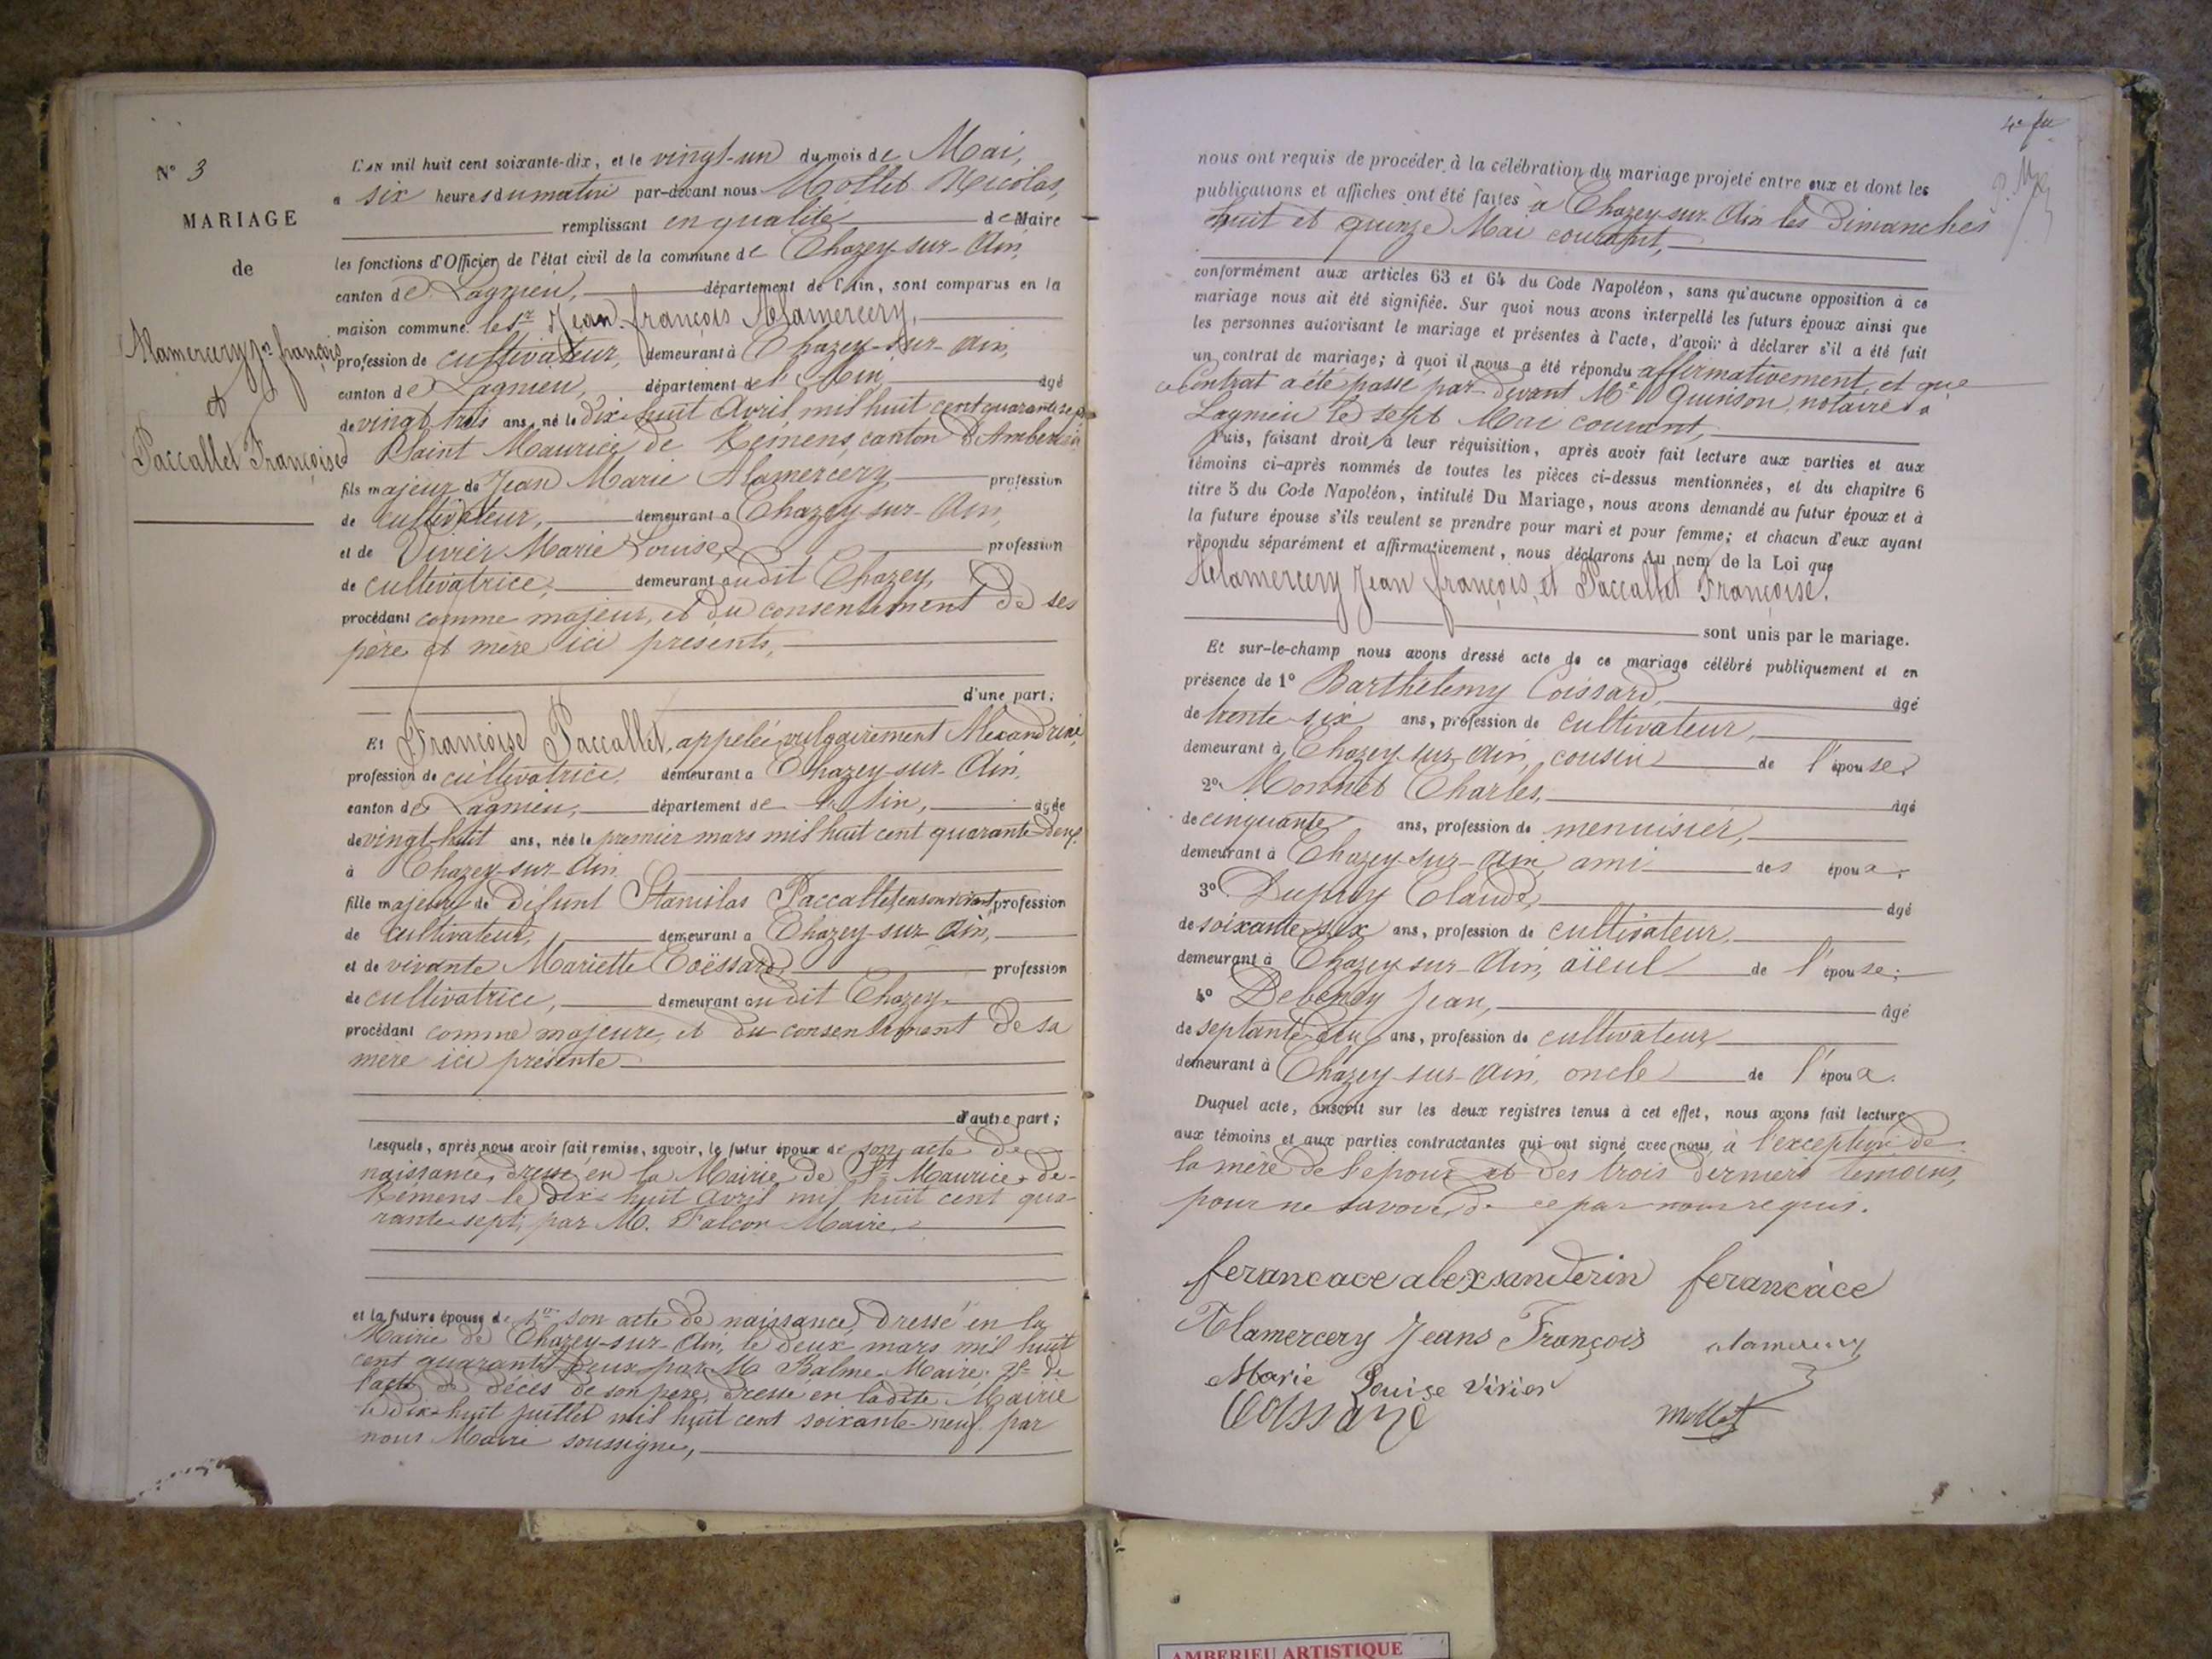 N° 3
MARIAGE
de
Alamercery Jn françois
et
Paccallet Françoise
L'AN mil huit cent soixante-dix, et le vingt-un du mois de Mai,
a six heures du matin par-devant nous Mollet Nicolas,
remplissant en qualité de Maire
les fonctions d'Officier de l'état civil de la commune de Chazey-sur-Ain,
canton de Lagnieu, département de l'Ain, sont comparus en la
maison commune. le sr Jean françois Alamercery,
profession de cultivateur, demeurant à Chazey-sur-Ain,
canton de Lagnieu, département de l'Ain, âgé
de vingt trois ans, né le dix-huit Avril, mil huit cent quarante sept
à Saint Maurice de Remens, canton d'Ambérieu
fils majeur de Jean Marie Alamercery, profession
de cultivateur, demeurant a Chazey-sur-Ain,
et de Vivier Marie Louise, profession
de cultivatrice, demeurant audit Chazey,
procédant comme majeur, et du consentement de ses
père et mère ici présents,
d'une part;
Et Françoise Paccallet, appelée vulgairement Alexandrine,
profession de cultivatrice, demeurant a Chazey-sur-Ain,
canton de Lagnieu, département de l'Ain, âgée
de vingt-huit ans, née le premier mars mil huit cent quarante-deux
à Chazey-sur-Ain,
fille majeure de défunt Stanislas Paccallet, en son vivant, profession
de cultivateur, demeurant a Chazey-sur-Ain,
et de vivante Mariette Coëssard, profession
de cultivatrice, demeurant audit Chazey
procédant comme majeure, et du consentement de sa
mère ici présente
d'autre part;
Lesquels, après nous avoir fait remise, savoir, le futur époux de son acte de
naissance, dressé en la Mairie de St Maurice-de-
Remens le dix-huit avril mil huit cent qua-
rante-sept, par M. Falcon Maire,
et la future épouse de 1° son acte de naissance, dressé en la
Mairie de Chazey-sur-Ain, le deux mars mil huit
cent quarante deux par M Balme Maire; 2° de
l'acte de décès de son père, dressé en ladite Mairie
le dix-huit juillet mil huit cent soixante-neuf par
nous Maire soussigné,
nous ont requis de procéder à la célébration du mariage projeté entre eux et dont les
publications et affiches ont été faites à Chazey-sur-Ain les dimanches
huit et quinze Mai courant,
conformément aux articles 63 et 64 du Code Napoléon, sans qu'aucune opposition à ce
mariage nous ait été signifiée. Sur quoi nous avons interpellé les futurs époux ainsi que
les personnes autorisant le mariage et présentes à l'acte, d'avoir à déclarer s'il a été fait
un contrat de mariage; à quoi il nous a été répondu affirmativement, et que
ce Contrat a été passé par-devant Me Quinson, notaire à
Lagnieu le sept Mai courant,
Puis, faisant droit à leur réquisition, après avoir fait lecture aux parties et aux
témoins ci-après nommés de toutes les pièces ci-dessus mentionnées, et du chapitre 6
titre 5 du Code Napoléon, intitulé Du Mariage, nous avons demandé au futur époux et à
la future épouse s'ils veulent se prendre pour mari et pour femme; et chacun d'eux ayant
répondu séparément et affirmativement, nous déclarons Au nom de la Loi que
Alamercery Jean françois, et Paccallet Françoise.
sont unis par le mariage.
Et sur-le-champ nous avons dressé acte de ce mariage célébré publiquement et en
présence de 1° Barthelemy Coissard, âgé
de trente-six ans, profession de cultivateur,
demeurant à Chazey-sur-Ain, cousin de l'épouse
2° Monnet Charles, âgé
de cinquante ans, profession de menuisier,
demeurant à Chazey-sur-Ain, ami des époux;
3° Dupuy Claude, âgé
de soixante-six ans, profession de cultivateur,
demeurant à Chazey-sur-Ain, aïeul de l'épouse;
4° Debeney Jean, âgé
de septante-deux ans, profession de cultivateur
demeurant à Chazey-sur-Ain, oncle de l'époux.
Duquel acte, inscrit sur les deux registres tenus à cet effet, nous avons fait lecture
aux témoins et aux parties contractantes qui ont signé avec nous, à l'exception de
la mère de l'epouse et des trois derniers témoins,
pour ne savoir, de ce par nous requis.
ferancace alexsanderin ferancace
Alamercery Jeans François alamercery
Marie Louise Vivier
Coissard mollet
AMBERIEU ARTISTIQUE